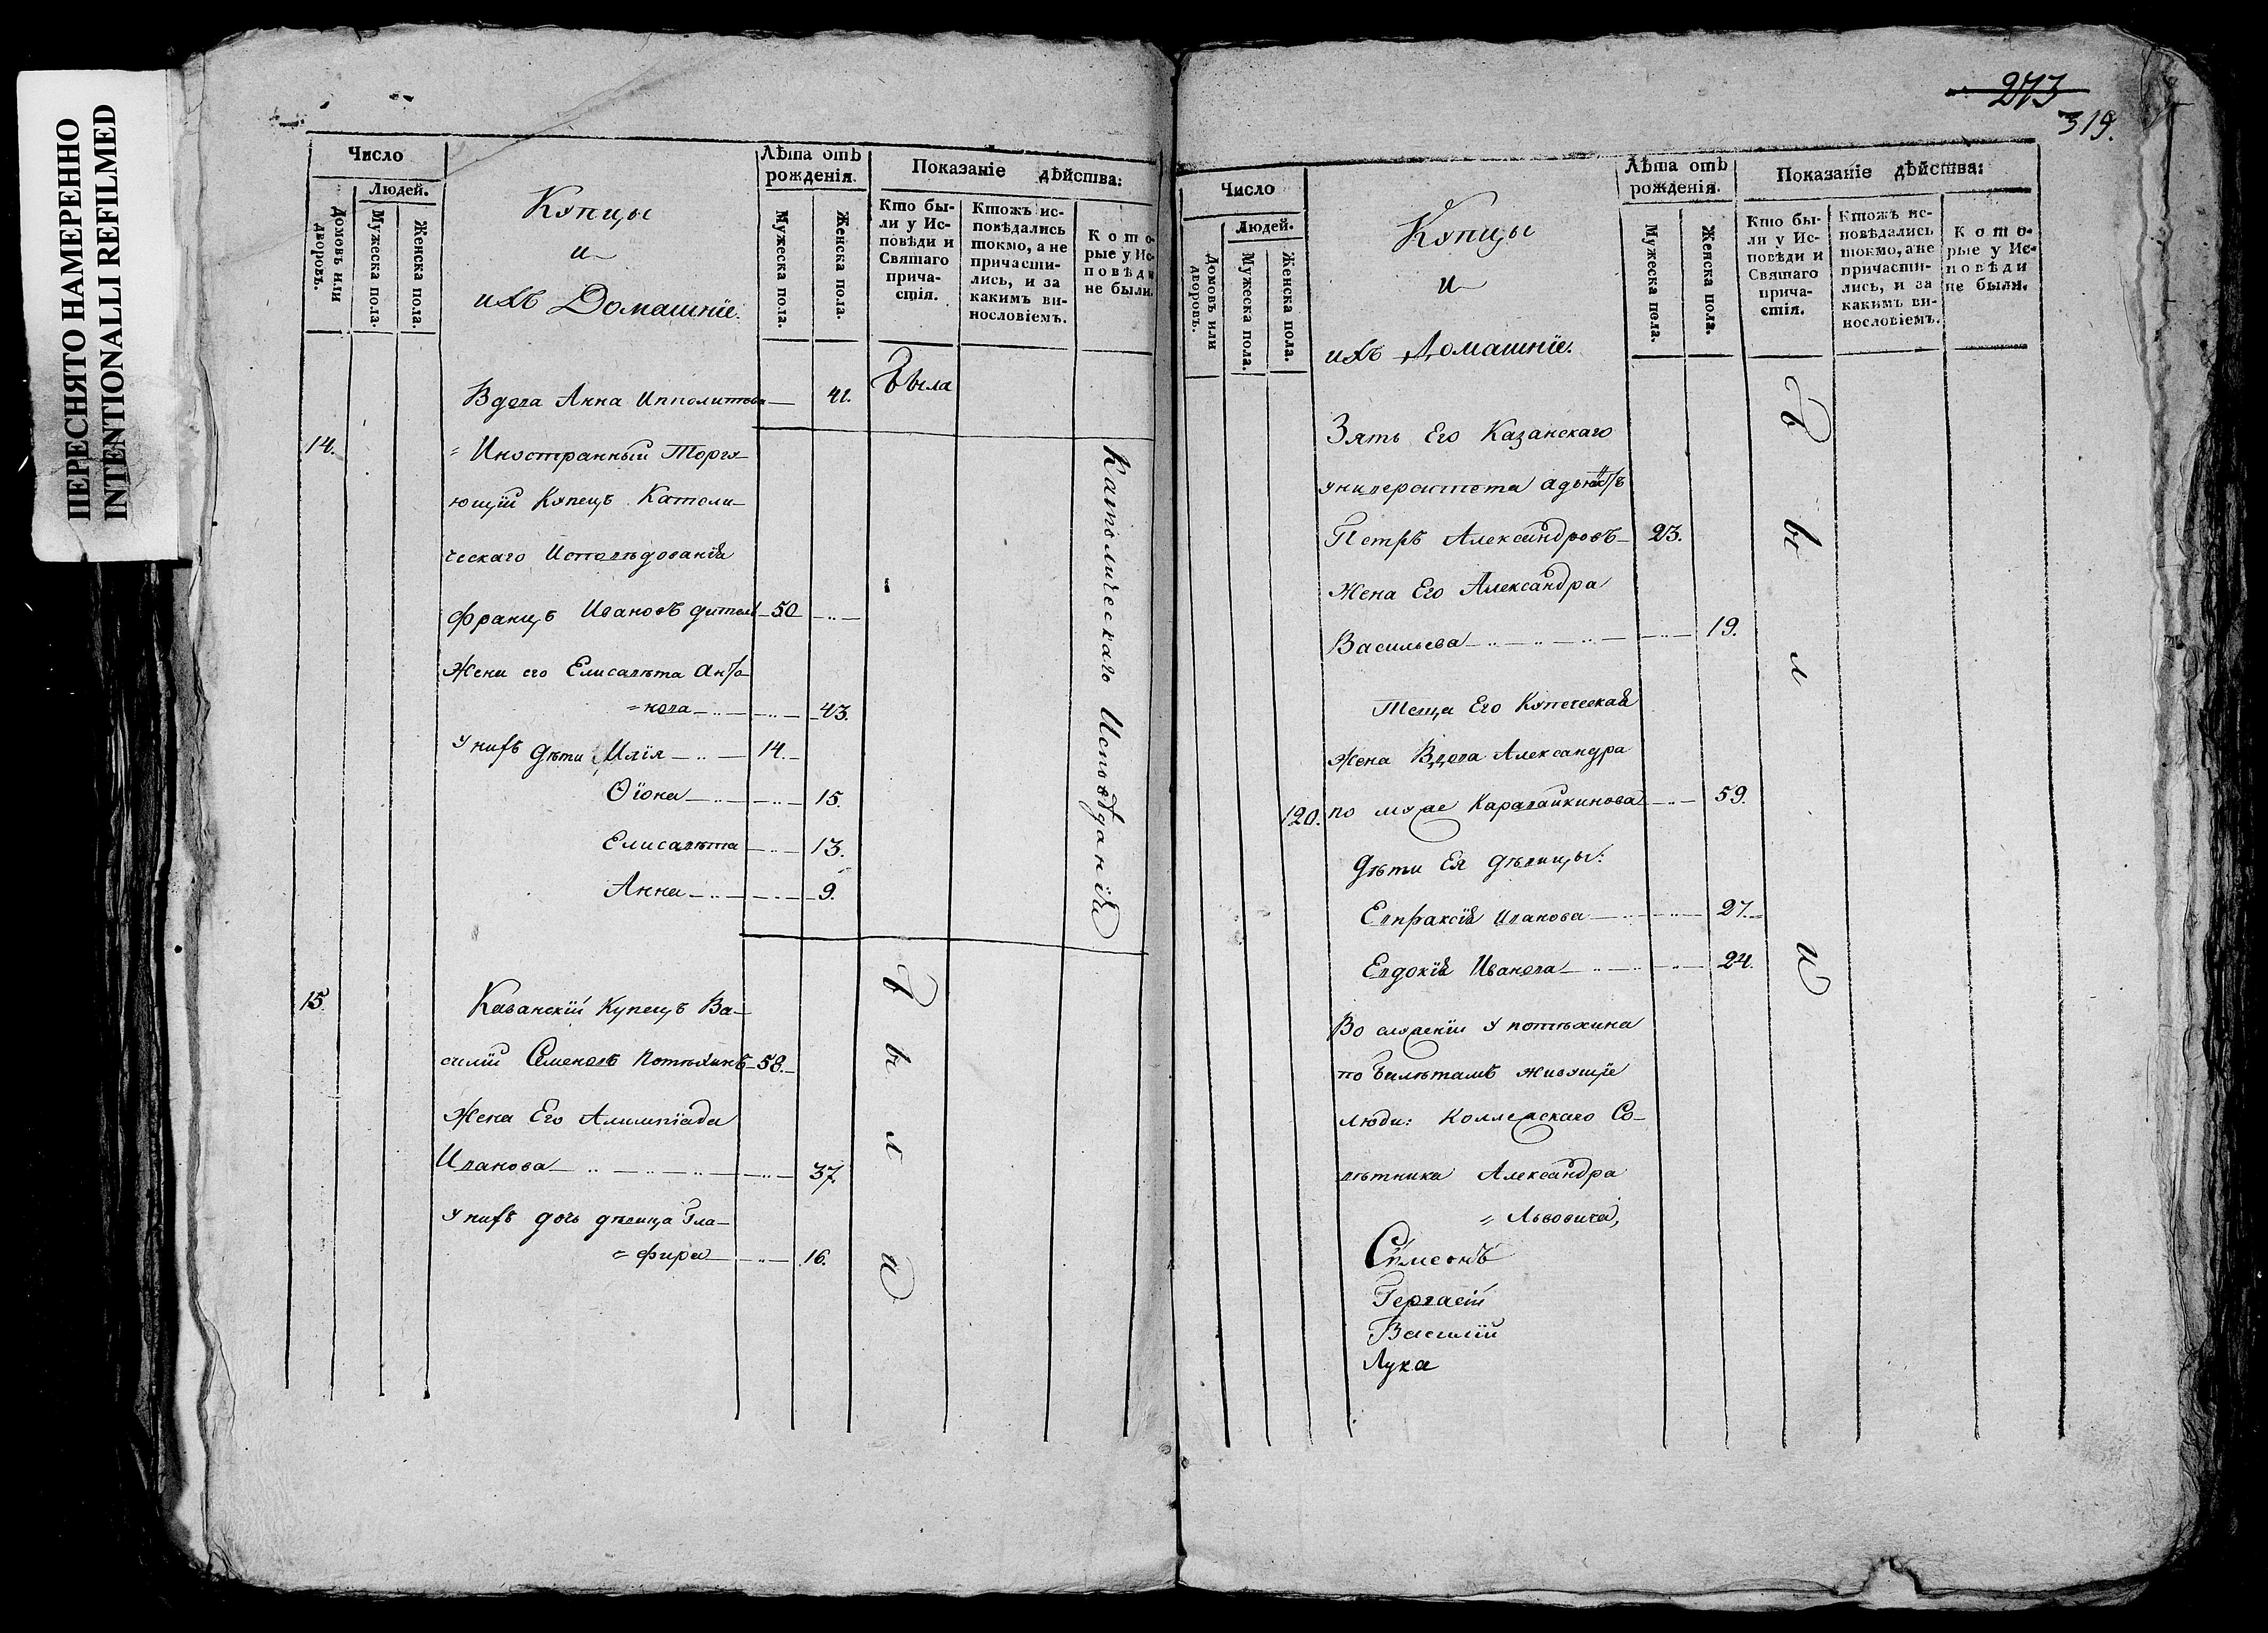 ПЕРЕСНЯТО НАМЕРЕННО
INTENTIONALLI REFILMED
Число
Людей.
Домовъ или дворовъ.
Мужеска пола.
Женска пола.
Купцы
и
ихъ Домашніе.
Лѣта отъ рожденія.
Мужеска пола.
Женска пола.
Показаніе дѣйства:
Кто бы-
ли у Ис-
повѣди и
Святаго
прича-
стія.
Ктожъ ис-
повѣдались
токмо, а не
причасти-
лись, и за
какимъ ви-
нословіемъ.
Кото-
рые у Ис-
повѣди
не были.
Вдова Анна Ипполитова — 41. была
14. Иностранный Торгу-
ющій Купецъ Католи-
ческаго Исповѣдованія
Францъ Ивановъ 50
Жена его Елисавета Анто-
=нова 43.
У нихъ дѣти Илія 14.
15.
Елисавета 13.
Анна 9.
Католическаго Исповѣданія
15. Казанскій Купецъ Ва-
силій Семеновъ Потѣхинъ 58.
Жена Его Алимпіада
Иванова 37.
У нихъ дочь дѣвица Гла-
=фира 16.
были
273
319.
Число
Людей.
Домовъ или дворовъ.
Мужеска пола.
Женска пола.
Купцы
и
ихъ Домашніе.
Лѣта отъ рожденія.
Мужеска пола.
Женска пола.
Показаніе дѣйства:
Кто бы-
ли у Ис-
повѣди и
Святаго
прича-
стія.
Ктожъ ис-
повѣдались
токмо, а не
причасти-
лись, и за
какимъ ви-
нословіемъ.
Кото-
рые у Ис-
повѣди
не были.
Зять Его Казанскаго
университета адъюнктъ
Петръ Александровъ 23.
Жена Его Александра
Васильева 19.
Теща Его Купеческая
Жена Вдова Александра
120. по мужѣ Каравайкинова 59.
Дѣти Ея дѣвицы:
Евпраксія Иванова 27.
Евдокія Иванова 24.
Во служеніи у Потѣхина
по билѣтамъ живущіе
люди: Коллежскаго Со-
вѣтника Александра
= Львовича,
Сѵмеонъ
Гервасій
Василій
Лука
были